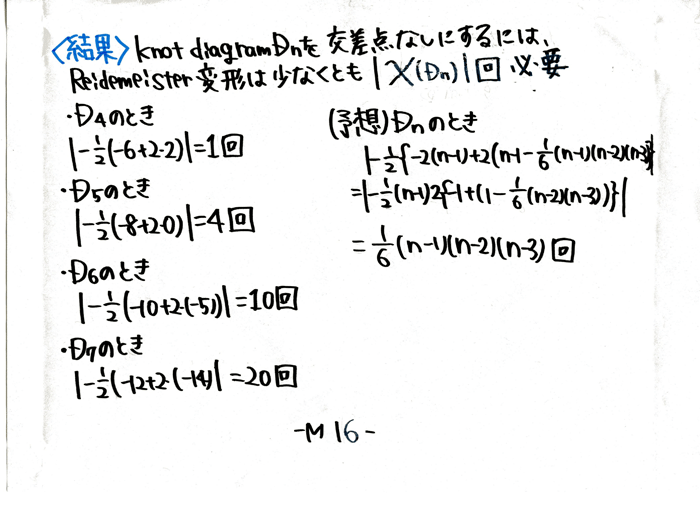 〈結果〉knot diagram Dnを交差点なしにするには、
Reidemeister変形は少なくとも|X(Dn)|回必要
・D4のとき
|-1/2(-6+2・2)|=1回
・D5のとき
|-1/2(-8+2・0)|=4回
・D6のとき
|-1/2(-10+2・(-5))|=10回
・D7のとき
|-1/2(-12+2・(-14)|=20回
(予想)Dnのとき
|-1/2{-2(n-1)+2(n-1-1/6(n-1)(n-2)(n-3)}|
=|-1/2(n-1)2{-1+(1-1/6(n-2)(n-3))}|
=1/6(n-1)(n-2)(n-3)回
-M16-